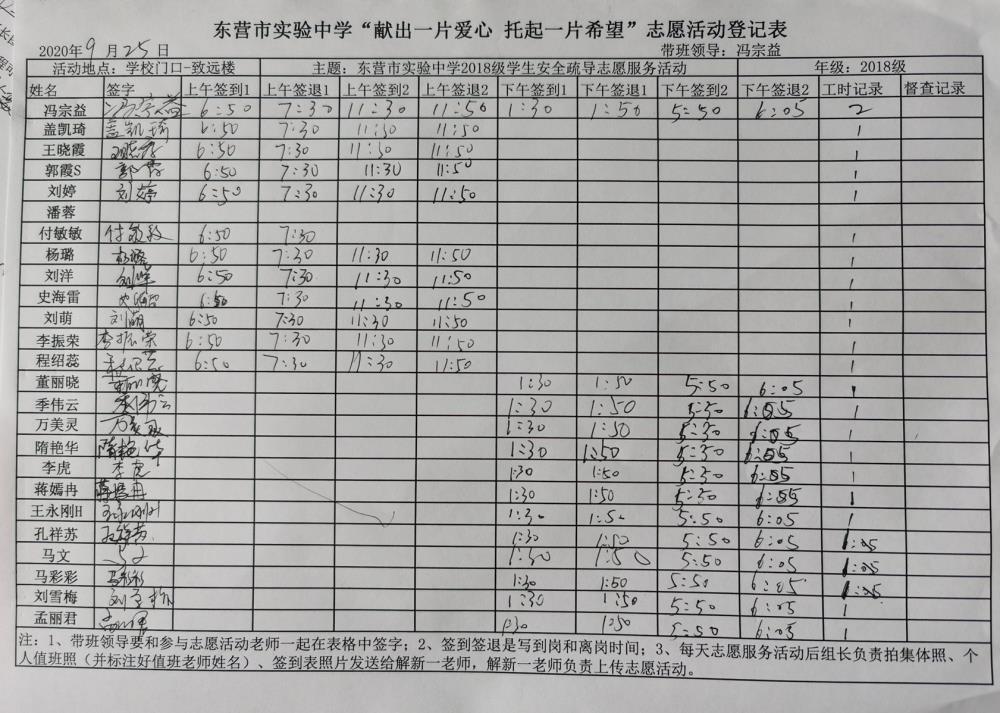 东营市实验中学“献出一片爱心 托起一片希望”志愿活动登记表
2020年9月25日 带班领导：冯宗益
活动地点：学校门口-致远楼 主题：东营市实验中学2018级学生安全疏导志愿服务活动 年级：2018级
姓名 签字 上午签到1 上午签退1 上午签到2 上午签退2 下午签到1 下午签退1 下午签到2 下午签退2 工时记录 督查记录
冯宗益 冯宗益 6:50 7:30 11:30 11:50 1:30 1:50 5:50 6:05 2
盖凯琦 盖凯琦 6:50 7:30 11:30 11:50 1
王晓霞 王晓霞 6:50 7:30 11:30 11:50 1
郭霞S 郭霞 6:50 7:30 11:30 11:50 1
刘婷 刘婷 6:50 7:30 11:30 11:50 1
潘蓉
付敏敏 付敏敏 6:50 7:30 1
杨璐 杨璐 6:50 7:30 11:30 11:50 1
刘洋 刘洋 6:50 7:30 11:30 11:50 1
史海雷 6:50 7:30 11:30 11:50 1
刘萌 刘萌 6:50 7:30 11:30 11:50 1
李振荣 李振荣 6:50 7:30 11:30 11:50 1
程绍蕊 6:50 7:30 11:30 11:50 1
董丽晓 1:30 1:50 5:50 6:05 1
季伟云 季伟云 1:30 1:50 5:50 6:05 1
万美灵 万美灵 1:30 1:50 5:50 6:05 1
隋艳华 隋艳华 1:30 1:50 5:50 6:05 1
李虎 李虎 1:30 1:50 5:50 6:05 1
蒋嫣冉 蒋嫣冉 1:30 1:50 5:50 6:05 1
王永刚H 王永刚H 1:30 1:50 5:50 6:05 1
孔祥苏 孔祥苏 1:30 1:50 5:50 6:05
马文 马文 1:30 1:50 5:50 6:05
马彩彩 马彩彩 1:30 1:50 5:50 6:05
刘雪梅 刘雪梅 1:30 1:50 5:50 6:05 1
孟丽君 1:30 1:50 5:50 6:05 1
注：1、带班领导要和参与志愿活动老师一起在表格中签字；2、签到签退是写到岗和离岗时间；3、每天志愿服务活动后组长负责拍集体照、个
人值班照（并标注好值班老师姓名）、签到表照片发送给解新一老师，解新一老师负责上传志愿活动。